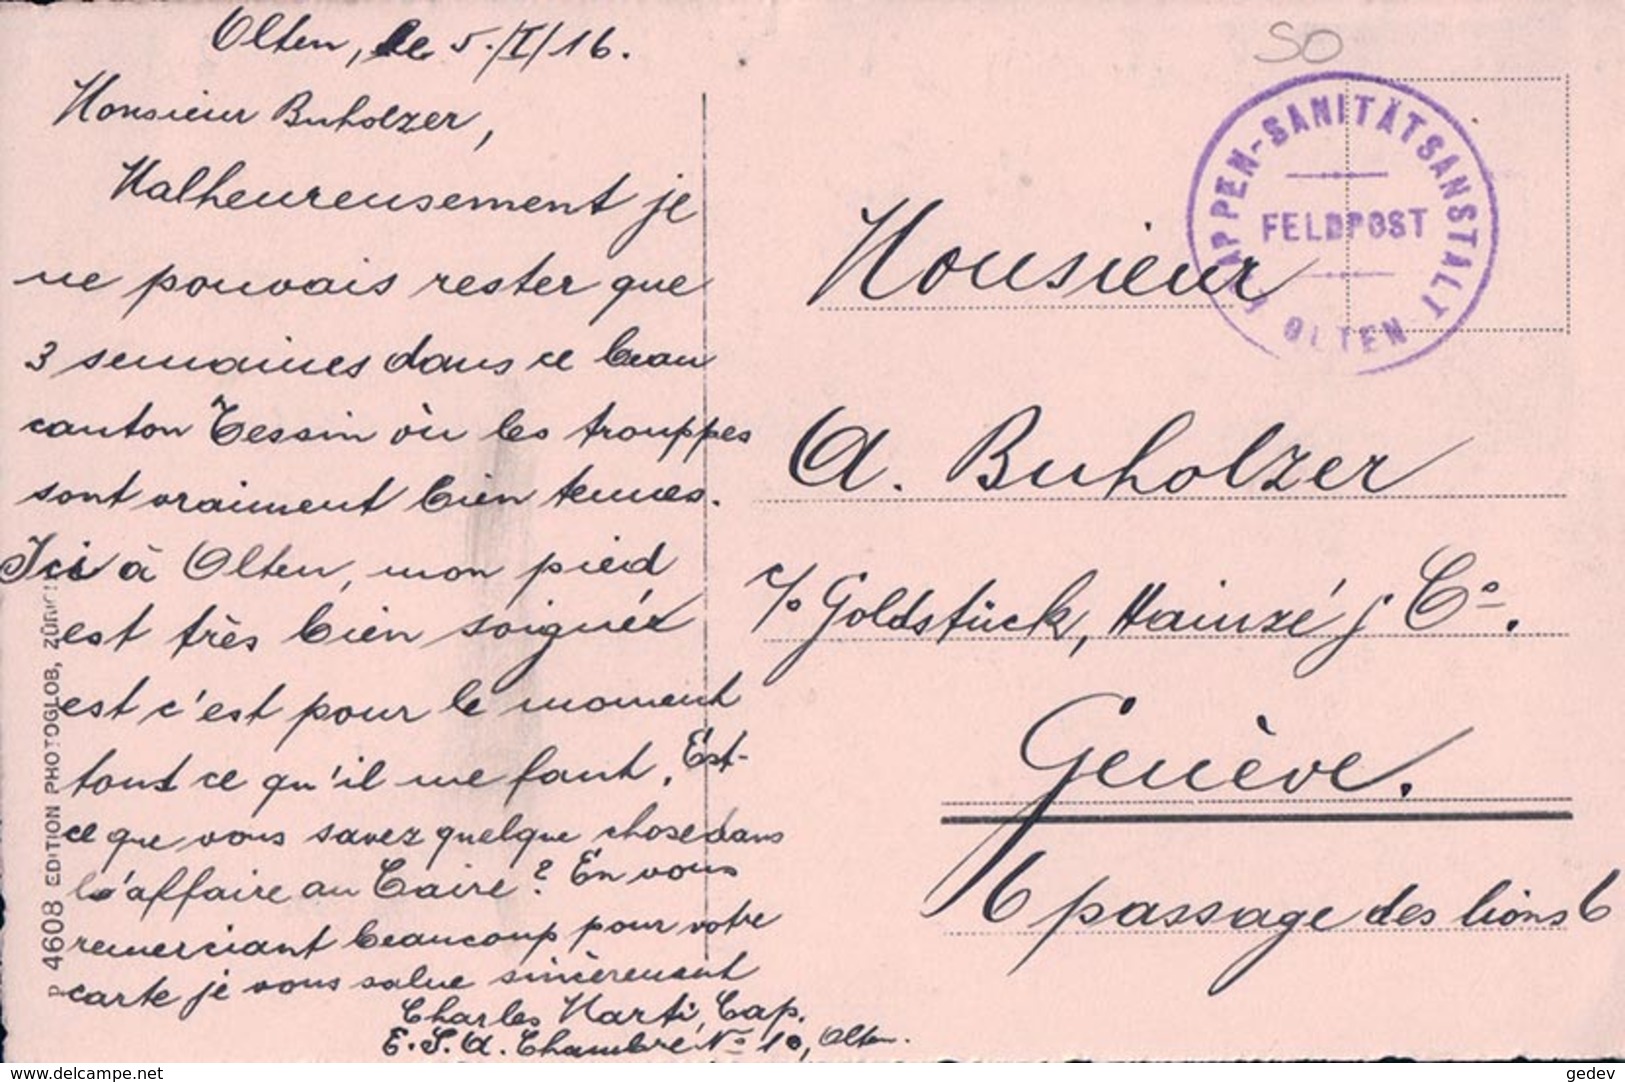 Olten, le 5./I/16.
Monsieur Buholzer,
Malheureusement je
ne pouvais rester que
3 semaines dans ce beau
canton Tessin où les trouppes
sont vraiment bien tenues.
Ici à Olten, mon pied
est très bien soignér
est c'est pour le moment
tout ce qu'il me faut. Est-
ce que vous savez quelque chose dans
l'affaire au Caire? En vous
remerciant beaucoup pour votre
carte je vous salue sincèrement
Charles Marti, Cap.
E.S.A. Chambre No 10, Olten.
P 4608 EDITION PHOTOGLOB, ZÜRICH
SO
APPEN-SANITÄTSANSTALT
FELDPOST
OLTEN
Monsieur
A. Buholzer
c/o Goldstück, Hainzé & Co.
Genève.
6 passage des lions 6
www.delcampe.net
gedev